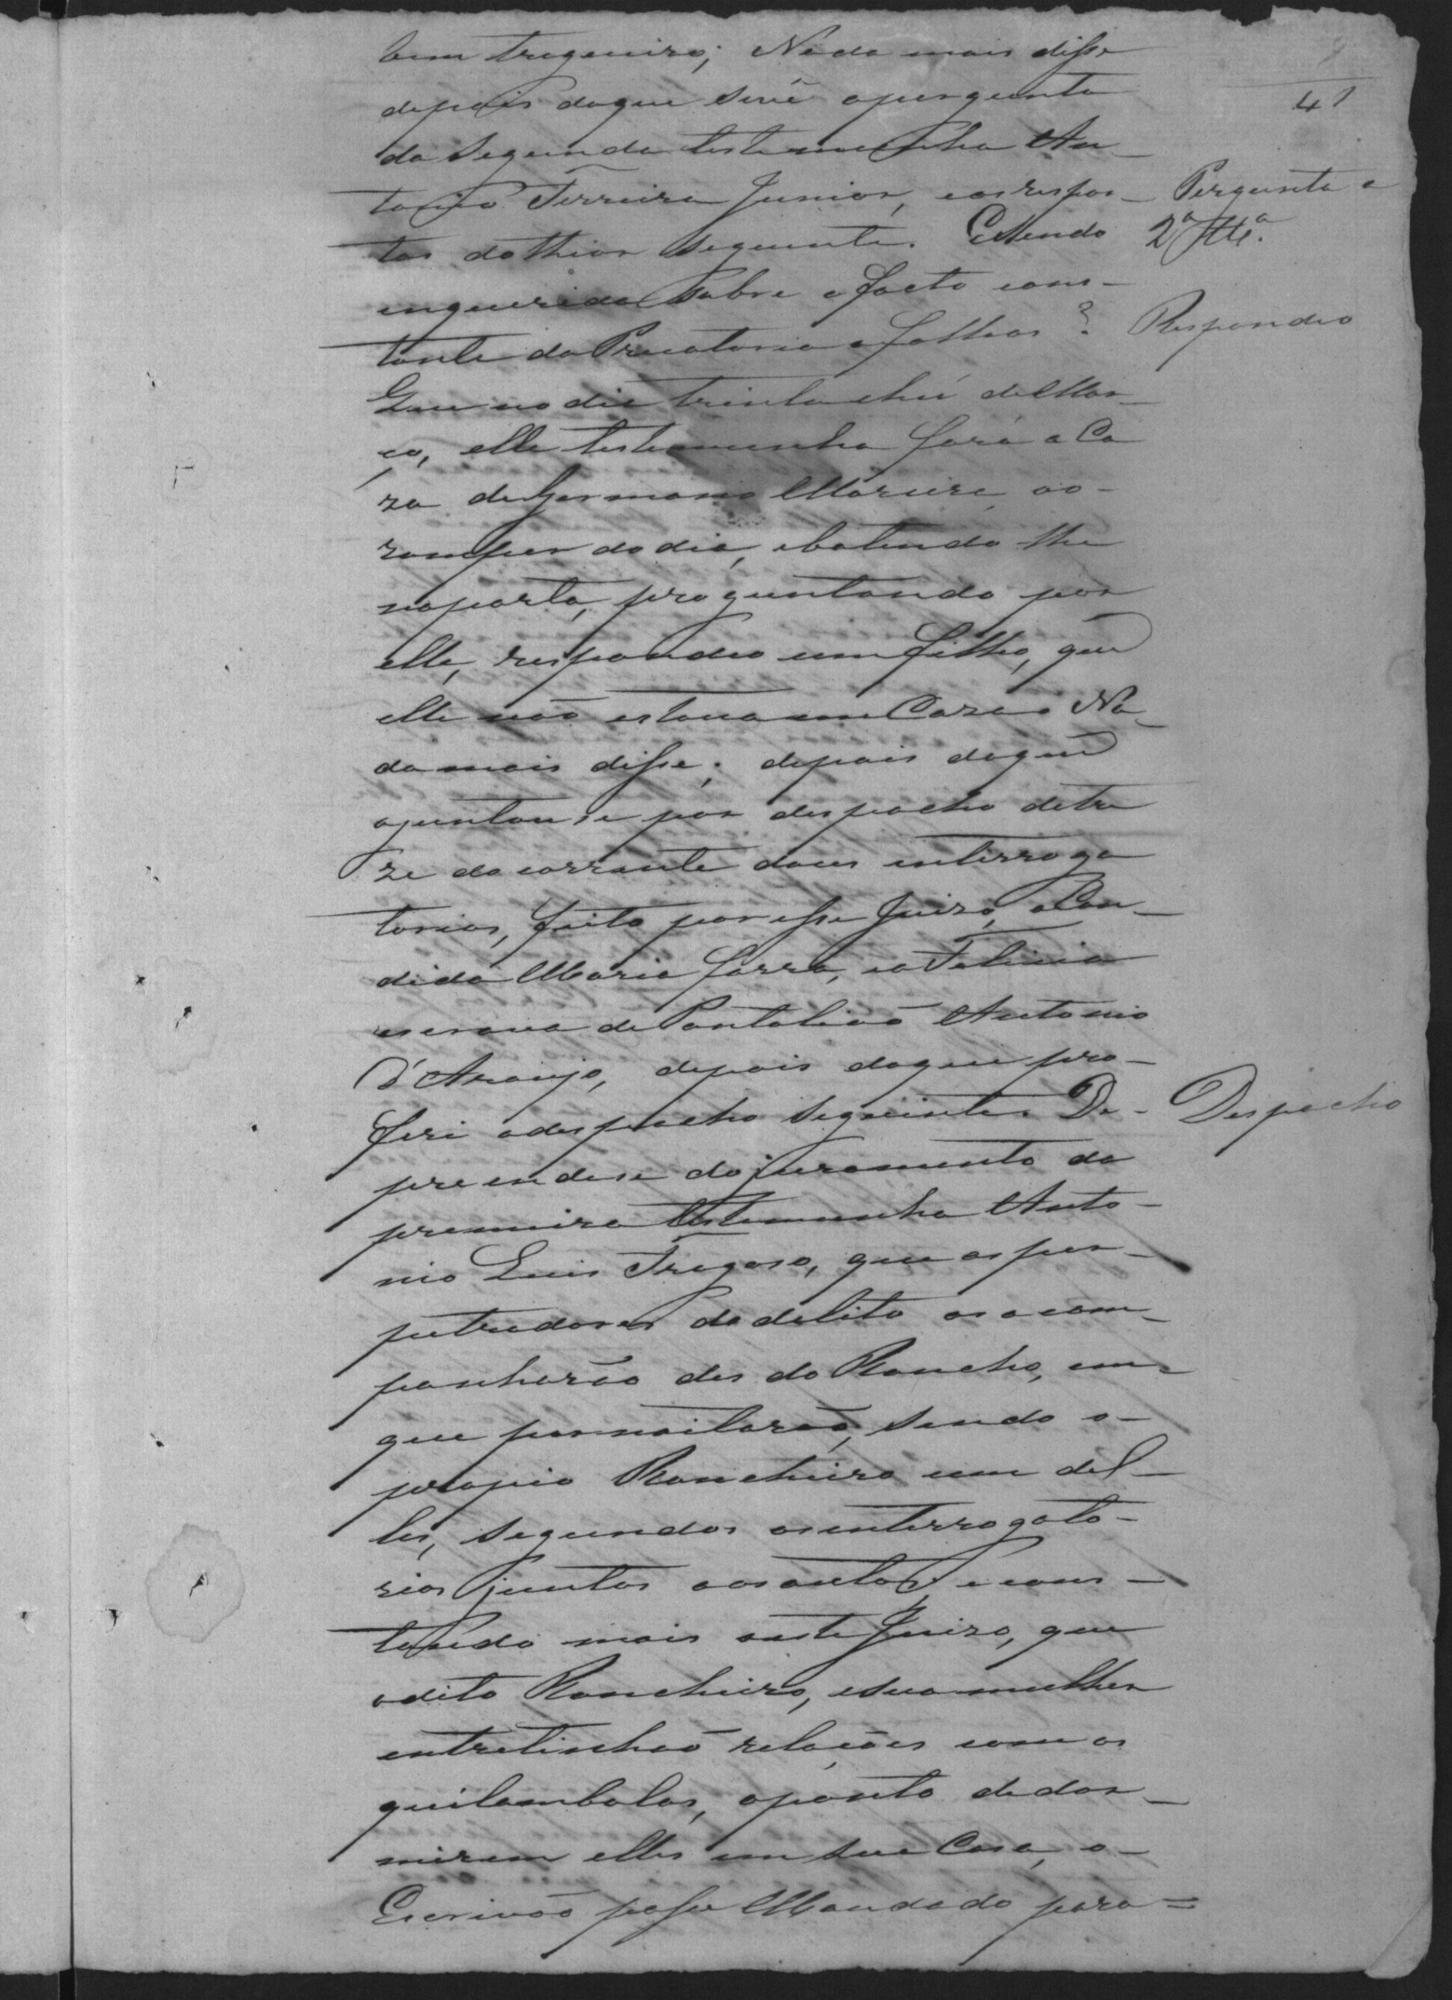 41
bem trigueiro; Nada mais disse
depois do que se vê a pergunta
da segunda testemunha An-
tonio Ferreira Junior, e as respos-
tas do thior seguinte. E sendo
Pergunta a
2ª Ttª.
enquerido sobre o facto cons-
tante da Precatoria a folhas?
Respondeo
Que no dia trinta e hú de Mar-
ço, elle testemunha fora a Ca
za de Germano Moreira, ao
romper do dia, e batendo lhe
na porta, proguntando por
elle, respondeo um filho, que
elle não estava em Caza. Na-
da mais disse; depois do que
ajuntou se por despacho de tre
ze do corrente dous interroga
torios, feito por esse Juizo, a Can-
dida Maria forra, e a Felicia
escrava de Pantalião Antonio
d'Araujo, depois do que pro-
feri o despacho seguinte. De-
Despacho
preende se do juramento da
premeira testemunha Anto-
nio Luis Fragoso, que os per-
petradores do delito os acom-
panharão des do Rancho, em
que pernoitarão, sendo o
propio Rancheiro um del-
les, segundos os interrogato-
rios juntos aos autos, e cons-
tando mais neste Juizo, que
o dito Rancheiro, e sua mulher
entretinhão relações com os
quilombolas, a ponto de dor-
mirem elles em sua Casa, o
Escrivão passe Mandado para